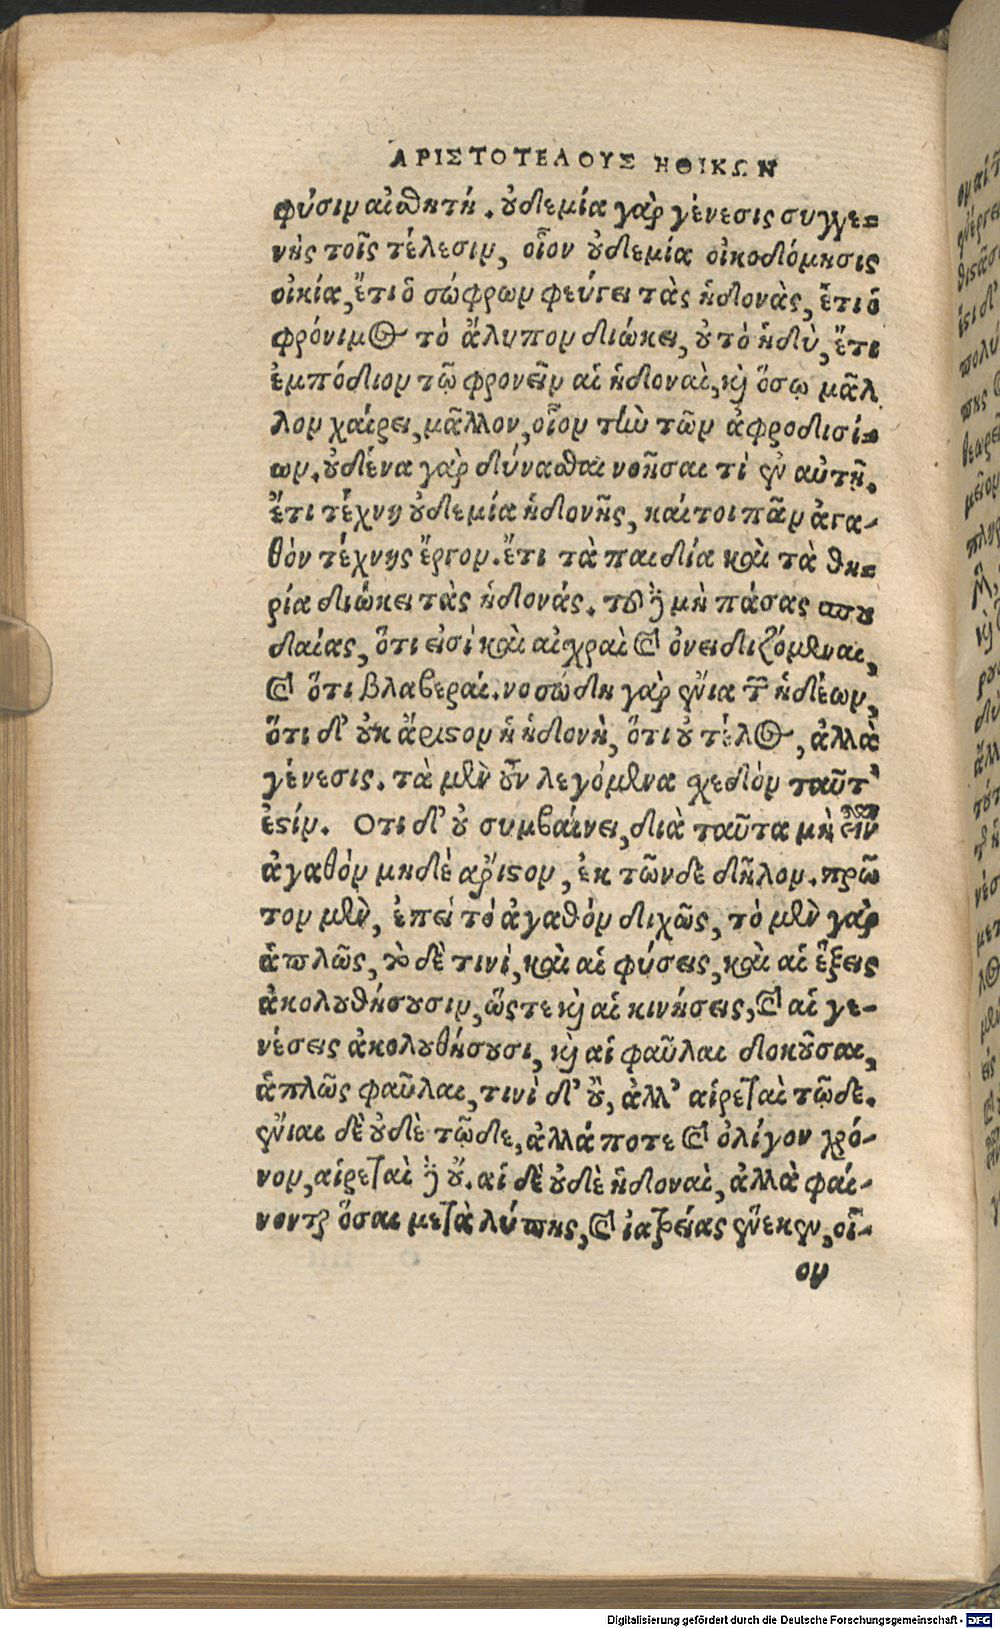 ΑΡΙΣΤΟΤΕΛΟΥΣ ΗΘΙΚΩΝ
φύσιν αἰσθητή. ȣ̓δεμία γὰρ γένεσις συγγε-
νὴς τοῖς τέλεσιν, οἷον ȣ̓δεμία οἰκοδόμησις
οἰκία, ἔτι ὁ σώφρων φεύγει τὰς ἡδονὰς, ἔτι ὁ
φρόνιμος τὸ ἄλυπον διώκει, ȣ̓ τὸ ἡδὺ, ἔτι
ἐμπόδιον τῷ φρονεῖν αἱ ἡδοναὶ, κὶ ὅσῳ μᾶλ
λον χαίρει, μᾶλλον, οἷον τὴν τῶν ἀφροδισί-
ων. ȣ̓δένα γὰρ δύνασθαι νοῆσαι τὶ ἐν αὐτῇ.
ἔτι τέχνη ȣ̓δεμία ἡδονῆς, καίτοι πᾶν ἀγα-
θὸν τέχνης ἔργον. ἔτι τὰ παιδία καὶ τὰ θη-
ρία διώκει τὰς ἡδονάς. τȣ͂ δὲ μὴ πάσας σπου
δαίας, ὅτι εἰσὶ καὶ αἰσχραὶ καὶ ὀνειδιζόμεναι,
καὶ ὅτι βλαβεραί. νοσώδη γὰρ ἔνια τῶν ἡδέων,
ὅτι δ' ȣ̓κ ἄριστον ἡ ἡδονὴ, ὅτι ȣ̓ τέλος, ἀλλὰ
γένεσις. τὰ μὲν ȣ̓͂ν λεγόμενα σχεδὸν ταῦτ'
ἐστίν. Οτι δ' ȣ̓ συμβαίνει, διὰ ταῦτα μὴ εἶναι
ἀγαθὸν μηδὲ ἄριστον, ἐκ τῶνδε δῆλον. πρῶ
τον μὲν, ἐπεὶ τὸ ἀγαθὸν διχῶς, τὸ μὲν γὰρ
ἁπλῶς, τὸ δὲ τινὶ, καὶ αἱ φύσεις, καὶ αἱ ἕξεις
ἀκολȣθήσȣσιν, ὥστε κὶ αἱ κινήσεις, καὶ αἱ γε-
νέσεις ἀκολȣθήσȣσι, κὶ αἱ φαῦλαι δοκȣ͂σαι,
ἁπλῶς φαῦλαι, τινὶ δ' ȣ̓̀, ἀλλ' αἱρεταὶ τῷδε.
ἔνιαι δὲ ȣ̓δὲ τῷδε, ἀλλά ποτε καὶ ὀλίγον χρό-
νον, αἱρεταὶ δὲ ȣ̓́. αἱ δὲ ȣ̓δὲ ἡδοναὶ, ἀλλὰ φαί-
νονται ὅσαι μετὰ λύπης, καὶ ἰατρείας ἕνεκεν, οἷ-
ον